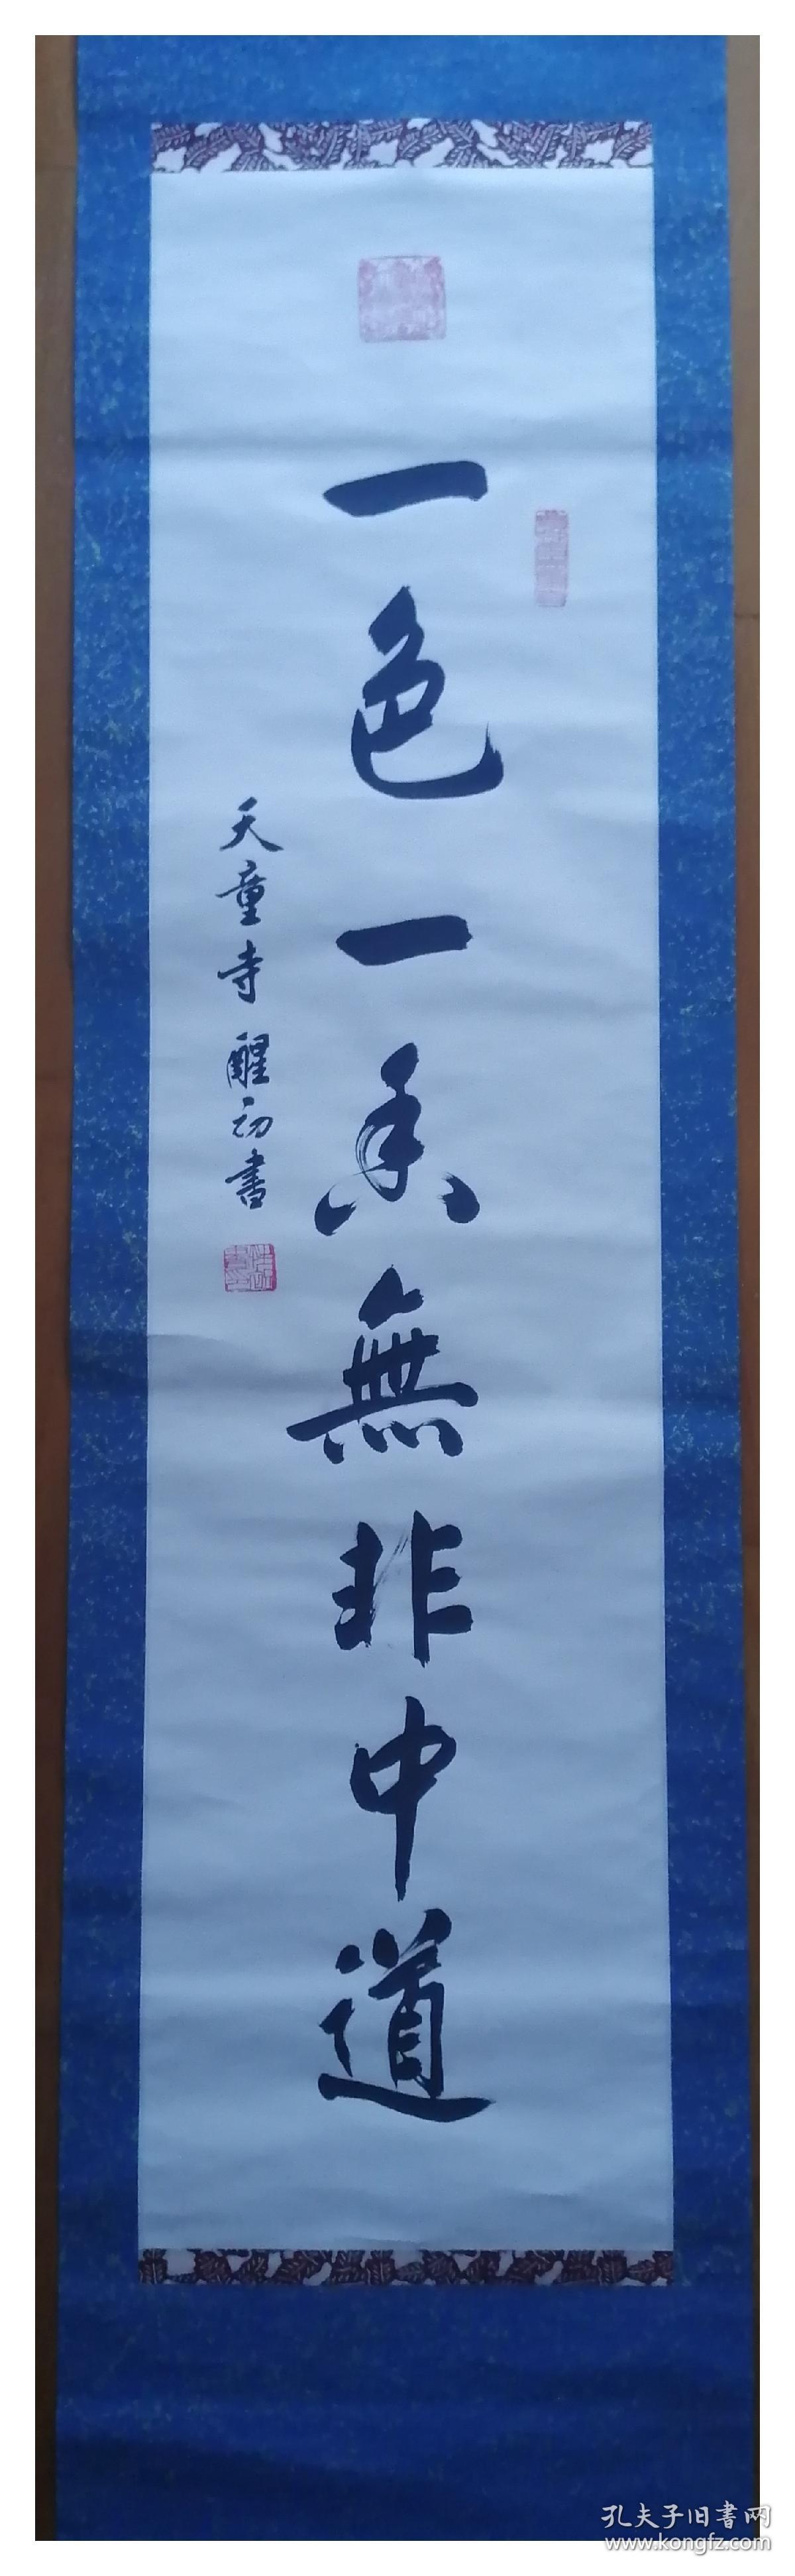 一色一香無非中道
天童寺 醒初書
孔夫子旧書网
www.kongfz.com